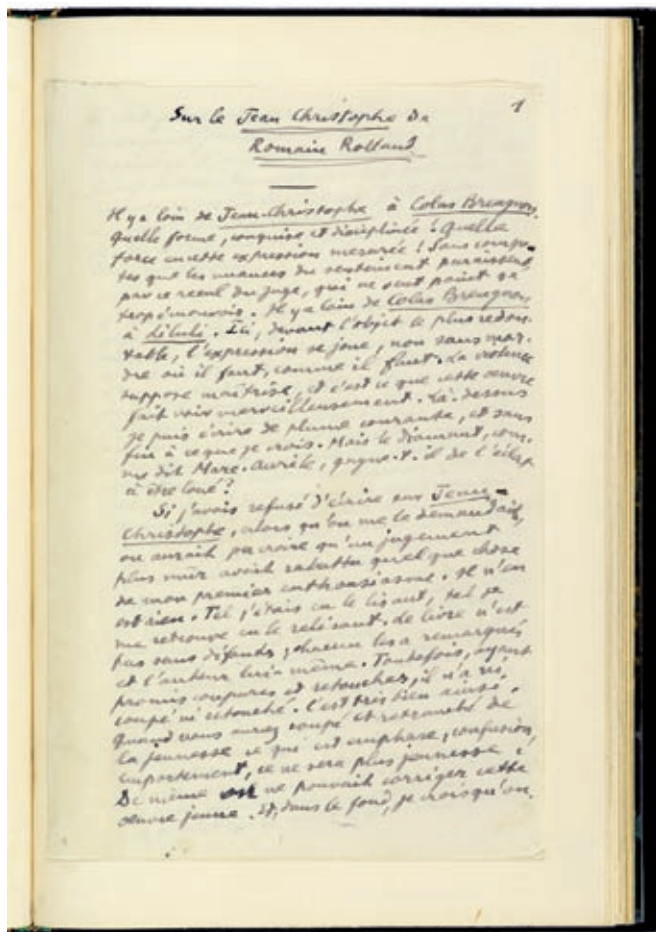 1
Sur le Jean Christophe de
Romain Rolland
Il y a loin de Jean-Christophe à Colas Breugnon.
Quelle forme, conquise et disciplinée ! Quelle
force en cette expression mesurée ! Sans comp-
ter que les nuances du sentiment paraissent,
par ce recul du juge, qui ne veut point se
trop émouvoir. Il y a loin de Colas Breugnon,
à Liluli. Ici, devant l'objet le plus redou-
table, l'expression se joue, non sans mor-
dre où il faut, comme il faut. La violence
suppose maîtrise, et c'est ce que cette œuvre
fait voir merveilleusement. Là-dessus
je puis écrire de plume courante, et sans
fin à ce que je crois. Mais le diamant, com-
me dit Marc-Aurèle, gagne-t-il de l'éclat
à être loué ?
Si j'avais refusé d'écrire sur Jean-
Christophe, alors qu'on me le demandait,
on aurait pu croire qu'un jugement
plus mûr avait rabattu quelque chose
de mon premier enthousiasme. Il n'en
est rien. Tel j'étais en le lisant, tel je
me retrouve en le relisant. Ce livre n'est
pas sans défauts ; chacun les a remarqués
et l'auteur lui-même. Toutefois, ayant
promis coupures et retouches, il n'a ni
coupé ni retouché. C'est très bien ainsi.
Quand vous aurez coupé et retranché de
la jeunesse ce qui est emphase, confusion,
emportement, ce ne sera plus jeunesse ;
De même on ne pouvait corriger cette
œuvre jeune. Et, dans le fond, je crois qu'on